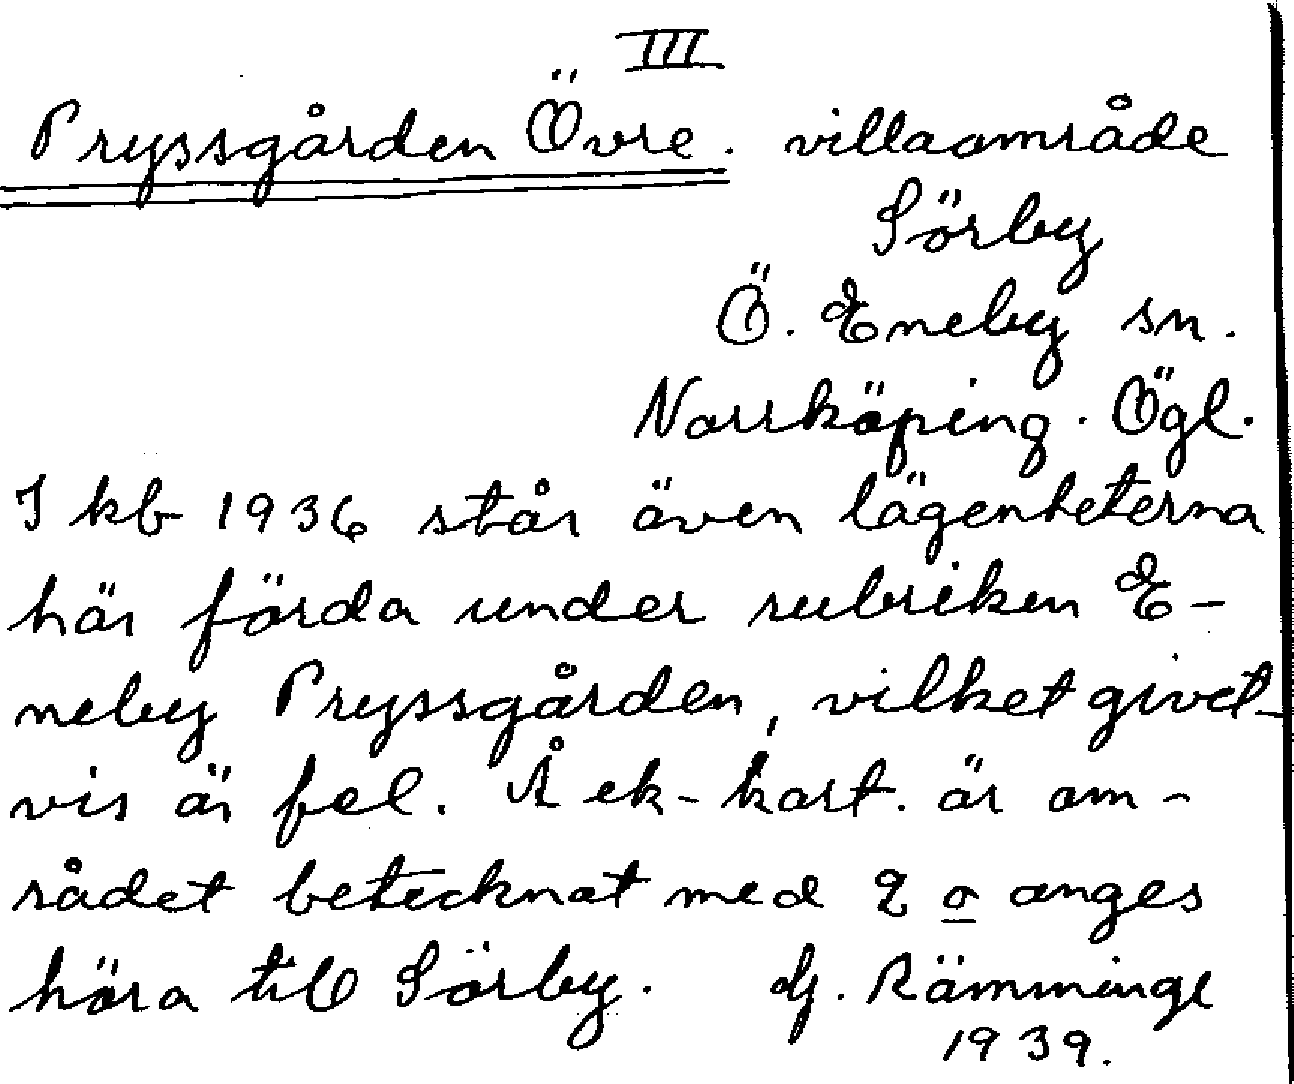 III
Pryssgården Övre. villaområde
Sörby
Ö. Eneby sn.
Norrköping. Ögl.
I kb 1936 står även lägenheterna
här förda under rubriken E-
neby Pryssgården, vilket givet-
vis är fel. Å ek-kart. är om-
rådet betecknat med o anges
höra till Sörby. G. Rämminge
1939.